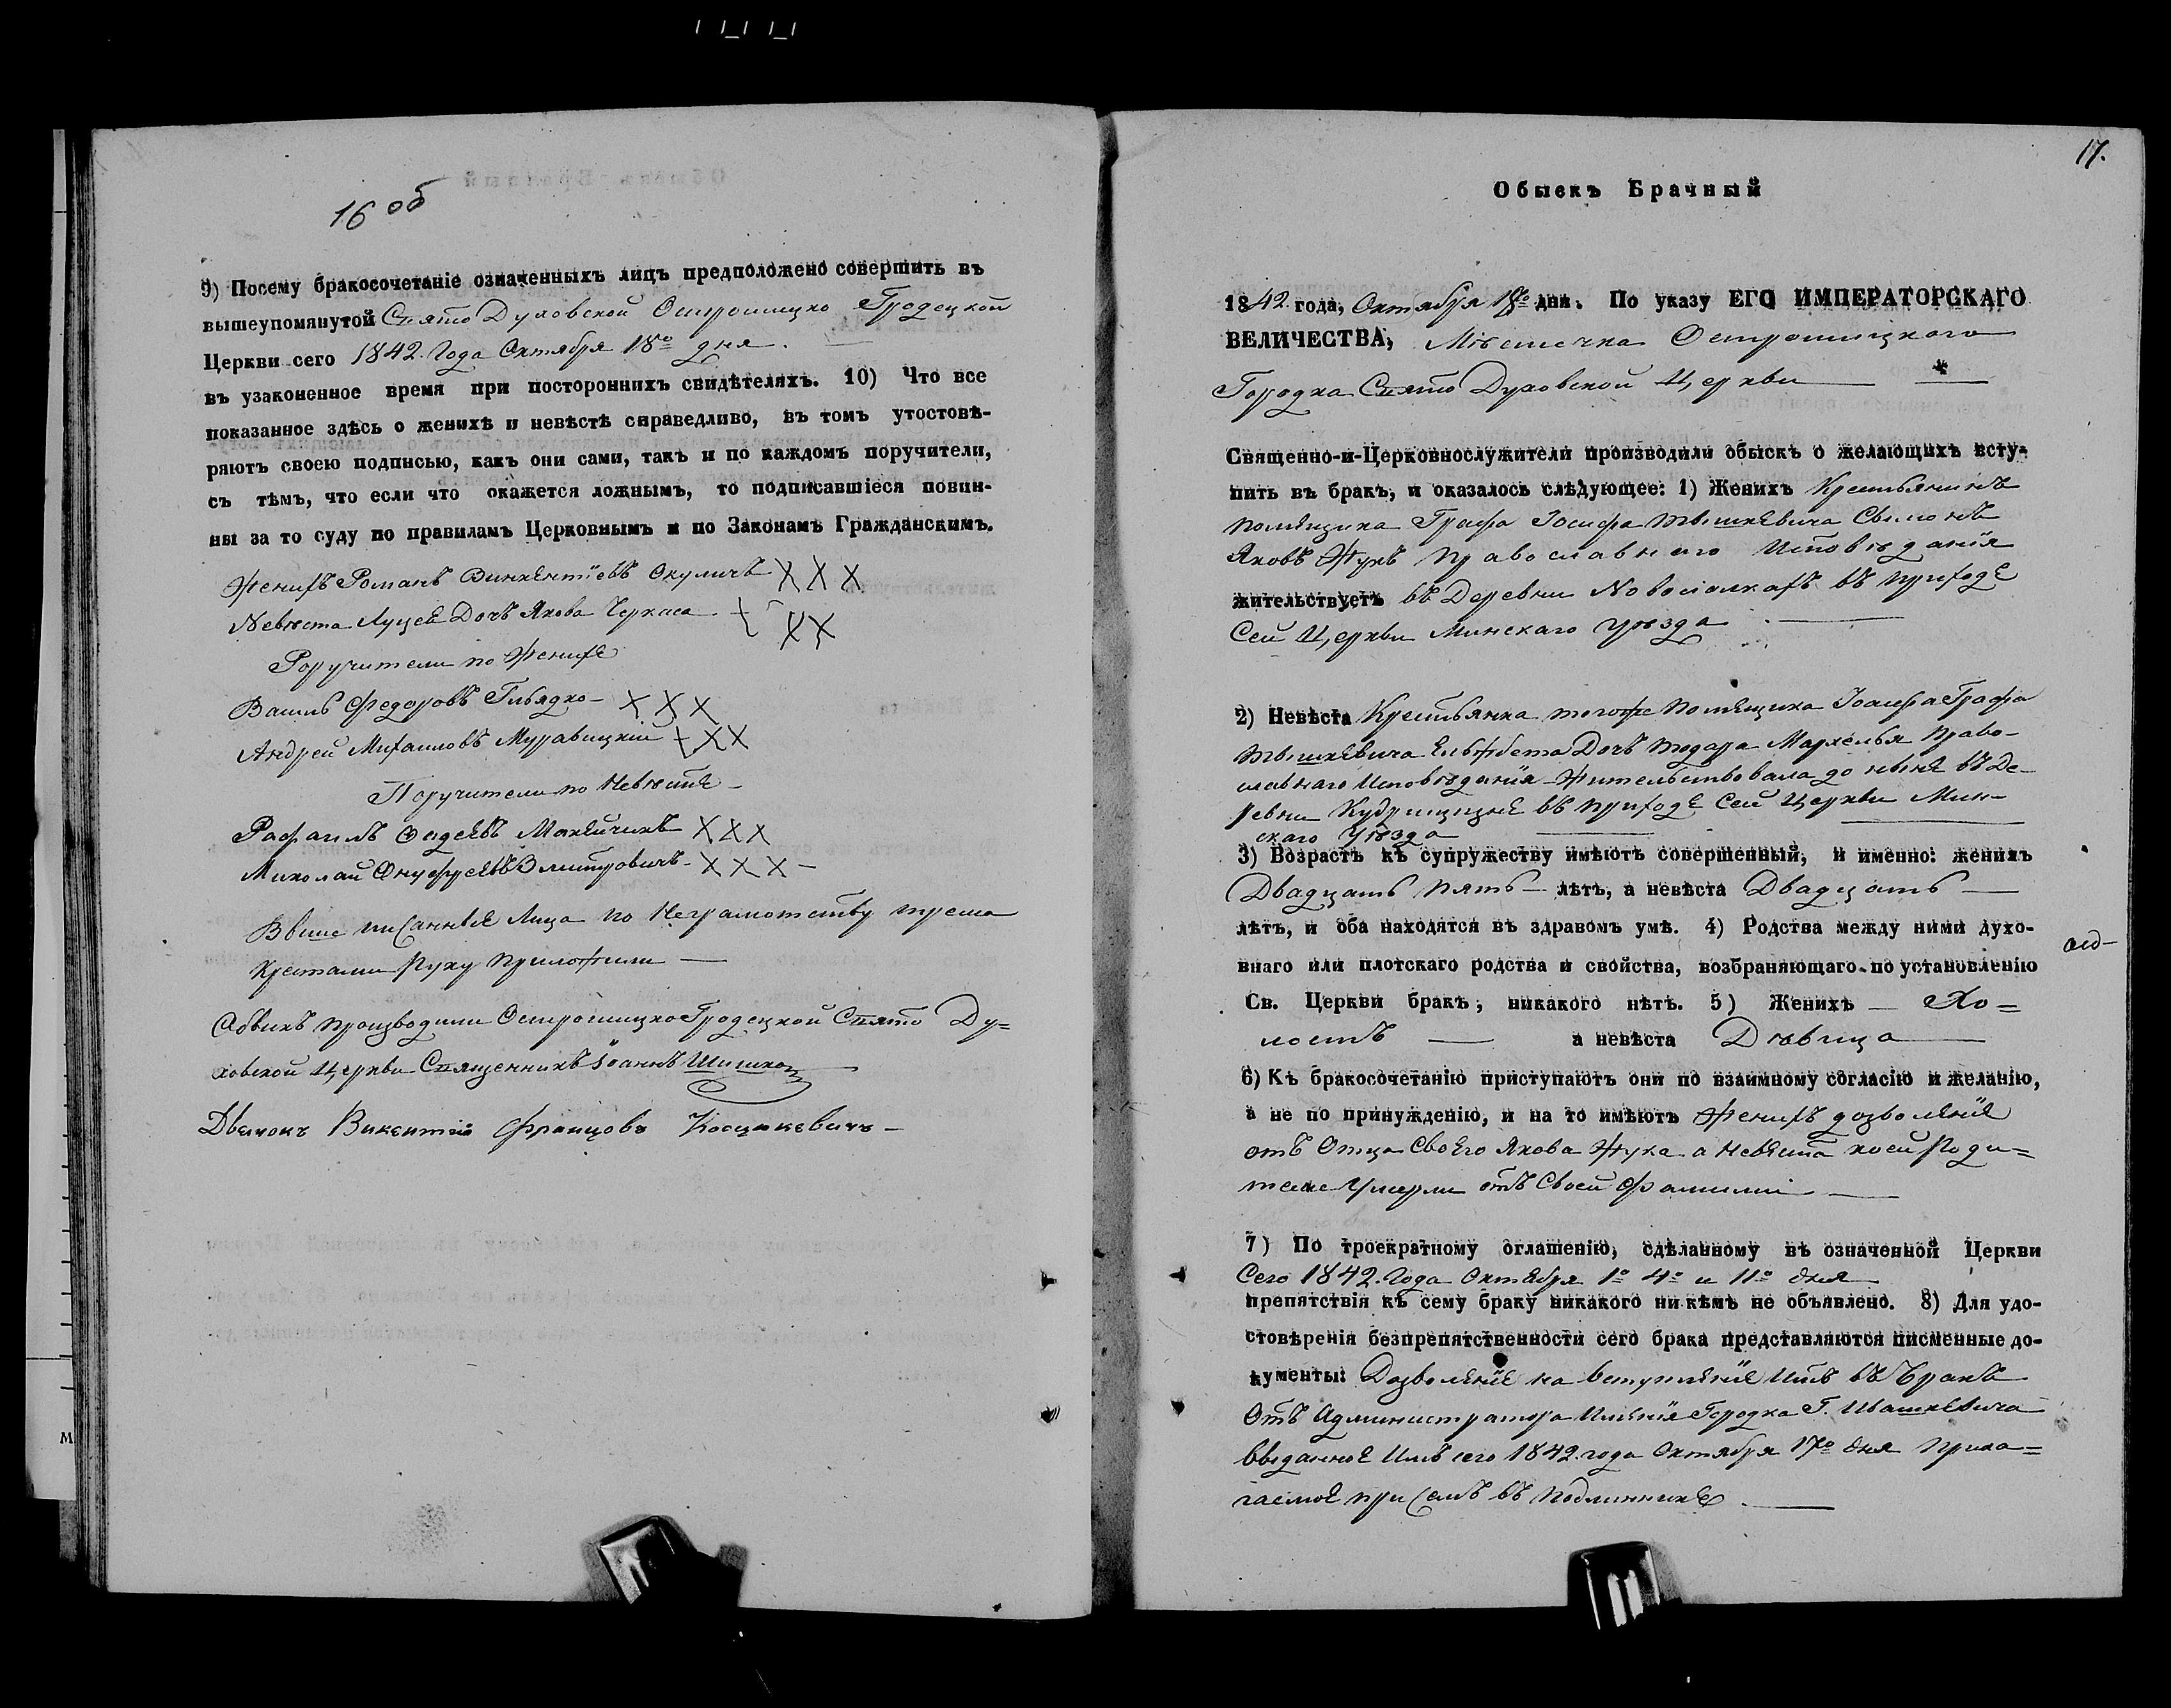 16 об
9) Посему бракосочетаніе означенныхъ лицъ предположено совершить въ
вышеупомянутой Свято Духовской Острошицко Гродецкой
Церкви сего 1842. Года Октября 18го дня.
въ узаконенное время при постороннихъ свидѣтеляхъ. 10) Что все
показанное здѣсь о женихѣ и невѣстѣ справедливо, въ томъ утостовѣ-
ряютъ своею подписью, какъ они сами, такъ и по каждомъ поручители,
съ тѣмъ, что если что окажется ложнымъ, то подписавшіеся повин-
ны за то суду по правиламъ Церковнымъ и по Законамъ Гражданскимъ.
Женихъ Романъ Винкентіевъ Окуличъ XXX
Невѣста Луцея Дочъ Якова Черкаса XXX
Поручители по Женихе
Василь Федоровъ Гльядко - XXX
Андрей Михаиловъ Муравицкій XXX
Поручители по Невѣсте -
Рафаилъ Фадеевъ Макейчикъ XXX
Миколай Онуфреевъ Змитровичъ - XXX -
Выше писанные Лица по Неграмотству трема
Крестами Руку Приложили
Обыкъ производили Острошицко Гродецкой Свято Ду=
ховской Церкви Священникъ Іоаннъ Шишко
Дьячокъ Викентій Францовъ Косцюкевичъ -
17.
Обыскъ Брачный
1842 года, Октября 18го дня. По указу ЕГО ИМПЕРАТОРСКАГО
ВЕЛИЧЕСТВА, Мѣстечка Острошицкаго
Городка Свято Духовской Церкви
Священно-и-Церковнослужители производили обыскъ о желающихъ всту-
пить въ бракъ, и оказалось слѣдующее: 1) Женихъ Крестьянинъ
Помещика Графа Іосифа Тышкевича
Яковъ Жукъ Православнаго Исповѣданія
жительствуетъ въ Деревни Новосіолкахъ въ Приходе
Сей Церкви Минскаго Уѣзда
2) Невѣста Крестьянка тогоже Помещика Іосифа Графа
Тышкевича Ельжбета Дочъ Тодара Мархеля Право-
славнаго Исповѣданія Жительствовала до ныне въ Де-
ревни въ Приходе Сей Церкви Мин-
скаго Уѣзда
3) Возрастъ къ супружеству имѣютъ совершенный, и именно: женихъ
Двадцать Пять - лѣтъ, а невѣста Двадцать
лѣтъ, и оба находятся въ здравомъ умѣ. 4) Родства между ними духо-
внаго или плотскаго родства и свойства, возбраняющаго по установленію
Св. Церкви бракъ, никакого нѣтъ. 5) Женихъ - Хо=
лостъ а невѣста Дѣвица
6) Къ бракосочетанію приступаютъ они по взаимному согласію и желанію,
а не по принужденію, и на то имѣютъ Женихъ дозволеніе
отъ Отца Своего Якова Жука а Невеста коей Роди=
тели Умерли отъ Своей Фамиліи
7) По троекратному оглашенію, сдѣланному въ означенной Церкви
Сего 1842. Года Октября 1о 4о и 11о дня
препятствія къ сему браку никакого никѣмъ не объявлено. 8) Для удо-
стовѣренія безпрепятственности сего брака представляются писменные до-
кументы: Дозволеніе на вступленіе Имъ въ Бракъ
Отъ Администратора Именія Городка Г. Ивашкевича
выданное Имъ сего 1842. года Октября 17о дня Прила=
гаемое при семъ въ Подлиннике